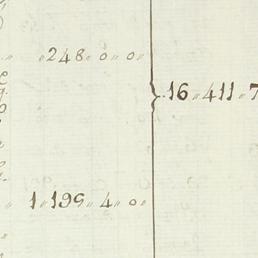 248 " 0 " 0 "
16 " 411 " 7
1 " 199 " 4 " 0 "